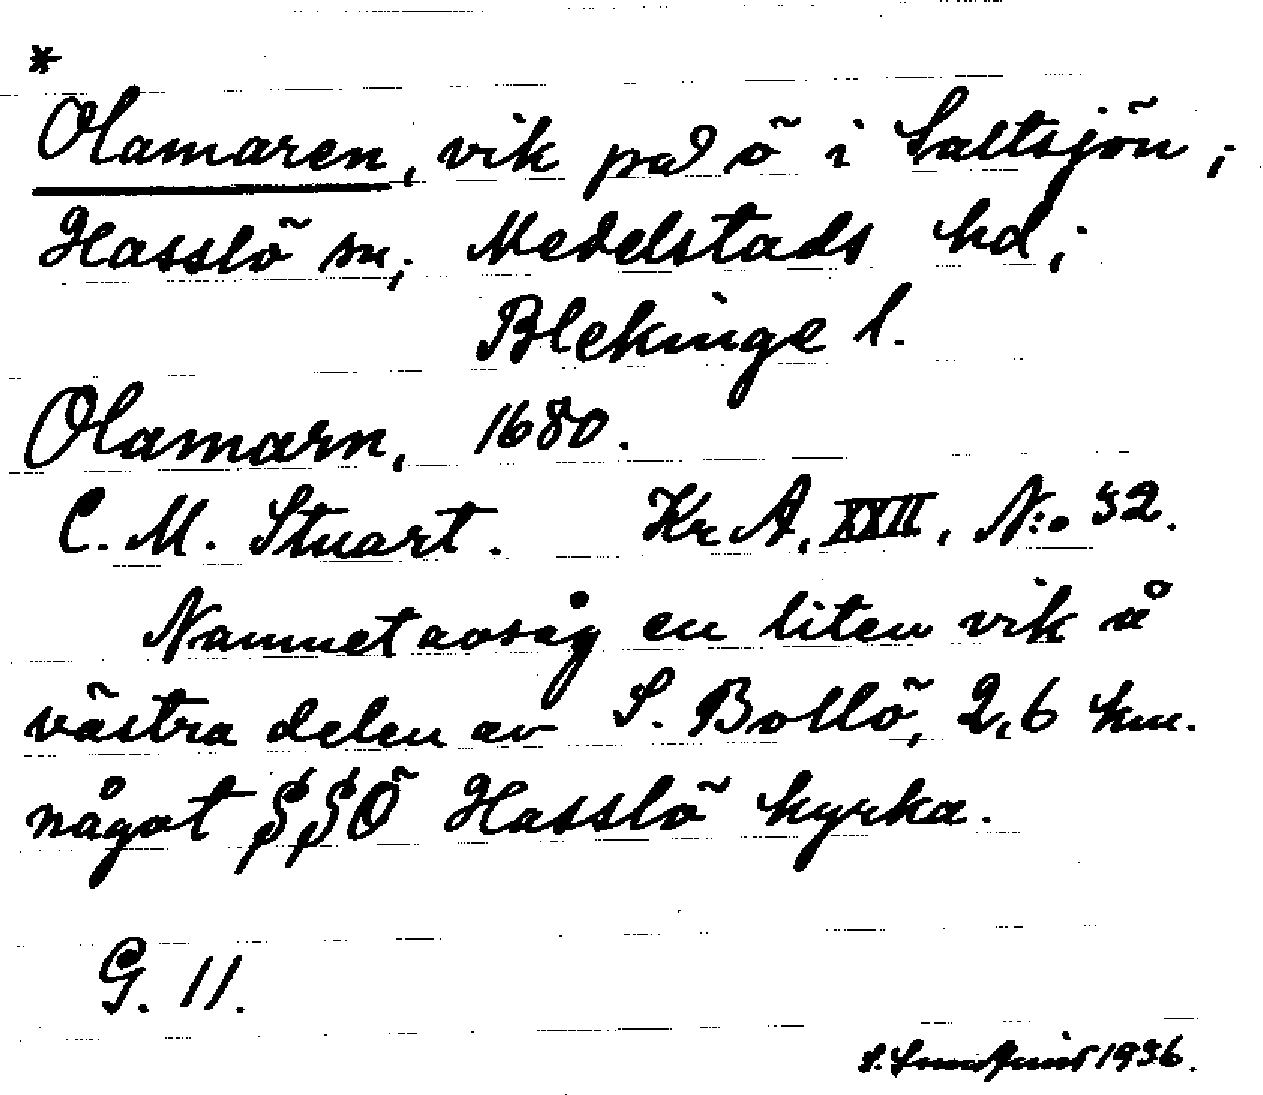 *
Olamaren, vik på ö i Saltsjön;
Hasslö sn; Medelstads hd;
Blekinge l.
Olamarn, 1680.
C. M. Stuart. Kr. A, XXII, N:o 32.
Namnet avsåg en liten vik å
västra delen av S. Bollö, 2,6 km.
något SSÖ Hasslö kyrka.
G. 11.
1936.